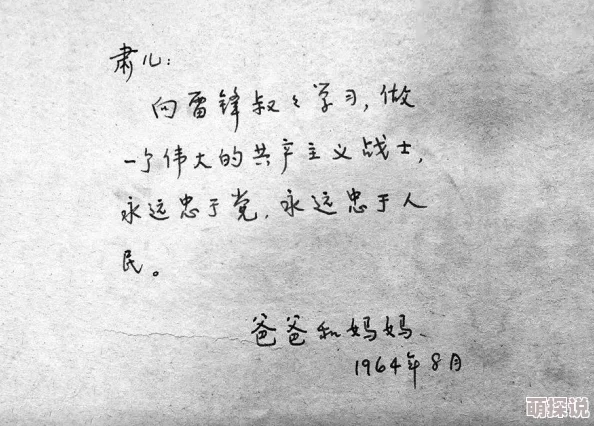 肃儿：
向雷锋叔々学习，做
一个伟大的共产主义战士，
永远忠于党，永远忠于人
民。
爸爸和妈妈、
1964年8月
萌探说